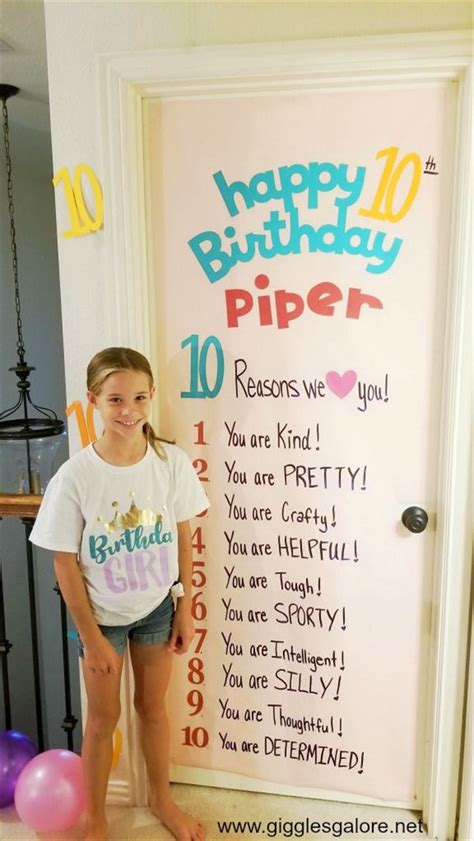 10
happy 10th
Birthday
Piper
10 Reasons we you!
1 You are Kind!
2 You are PRETTY!
3 You are Crafty!
4 You are HELPFUL!
5 You are Tough!
6 You are SPORTY!
7 You are Intelligent!
8 You are SILLY!
9 You are Thoughtful!
10 You are DETERMINED!
10
Birthday
GIRL
www.gigglesgalore.net